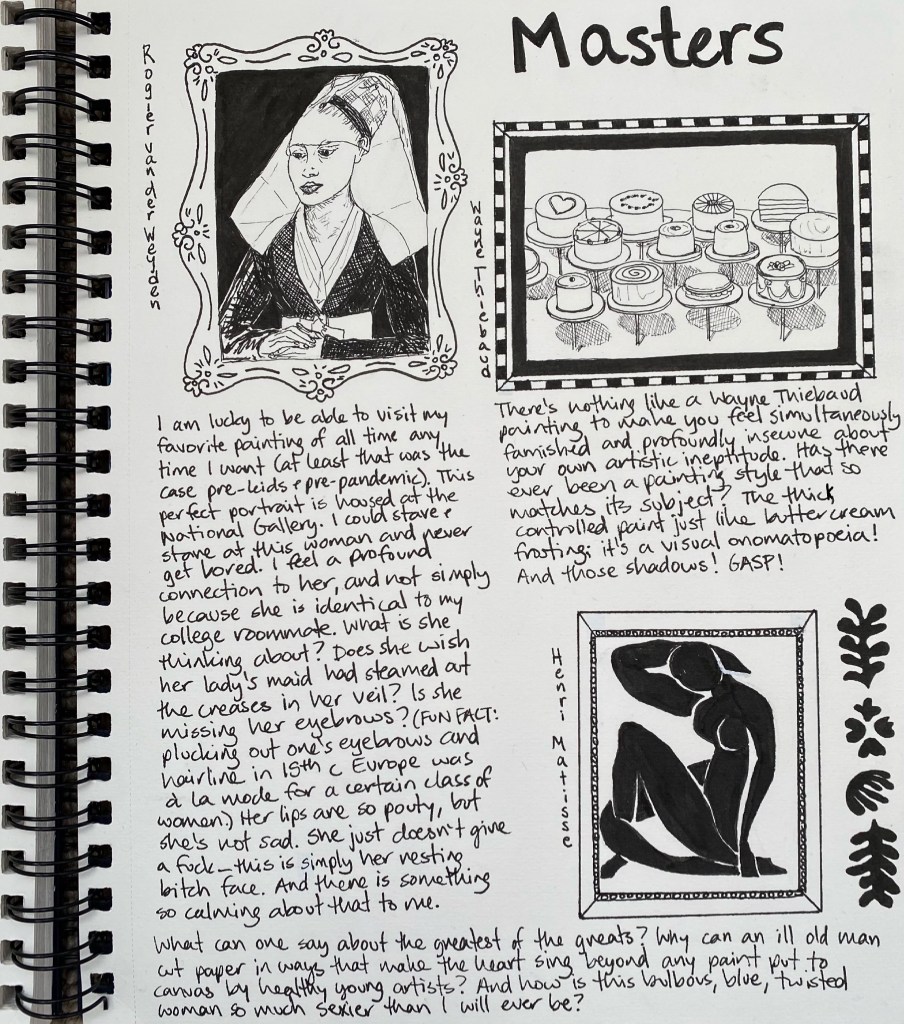 Masters
Rogier van der Weyden
I am lucky to be able to visit my
favorite painting of all time any
time I want (at least that was the
case pre-kids & pre-pandemic). This
perfect portrait is housed at the
National Gallery. I could stare &
stare at this woman and never
get bored. I feel a profound
connection to her, and not simply
because she is identical to my
college roommate. What is she
thinking about? Does she wish
her lady's maid had steamed out
the creases in her veil? Is she
missing her eyebrows? (FUN FACT:
plucking out one's eyebrows and
hairline in 15th c Europe was
à la mode for a certain class of
women.) Her lips are so pouty, but
she's not sad. She just doesn't give
a fuck – this is simply her resting
bitch face. And there is something
so calming about that to me.
Wayne Thiebaud
There's nothing like a Wayne Thiebaud
painting to make you feel simultaneously
famished and profoundly insecure about
your own artistic ineptitude. Has there
ever been a painting style that so
matches its subject? The thick
controlled paint just like buttercream
frosting; it's a visual onomatopoeia!
And those shadows! GASP!
Henri Matisse
What can one say about the greatest of the greats? Why can an ill old man
cut paper in ways that make the heart sing beyond any paint put to
canvas by healthy young artists? And how is this bulbous, blue, twisted
woman so much sexier than I will ever be?